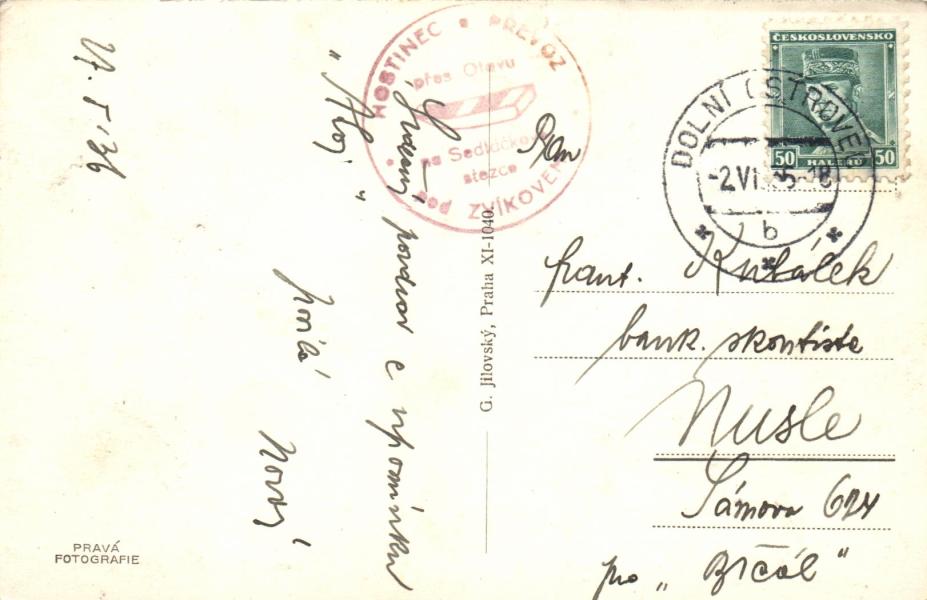 1/7. 5. '36
"Ahoj"
Srdečný pozdrav a upomínku
Novák
PRAVÁ
FOTOGRAFIE
HOSTINEC • PŘEVOZ
přes Otavu
na Sedláčkově
stezce
pod ZVÍKOVEM
G. Jílovský, Praha XI-1040.
ČESKOSLOVENSKO
50 HALÉŘŮ 50
DOLNÍ OSTROVEC
-2.VI.
b
Pan
frant. Kubálek
bank. skontista
Nusle
Sámova 624
pro "Brčál"